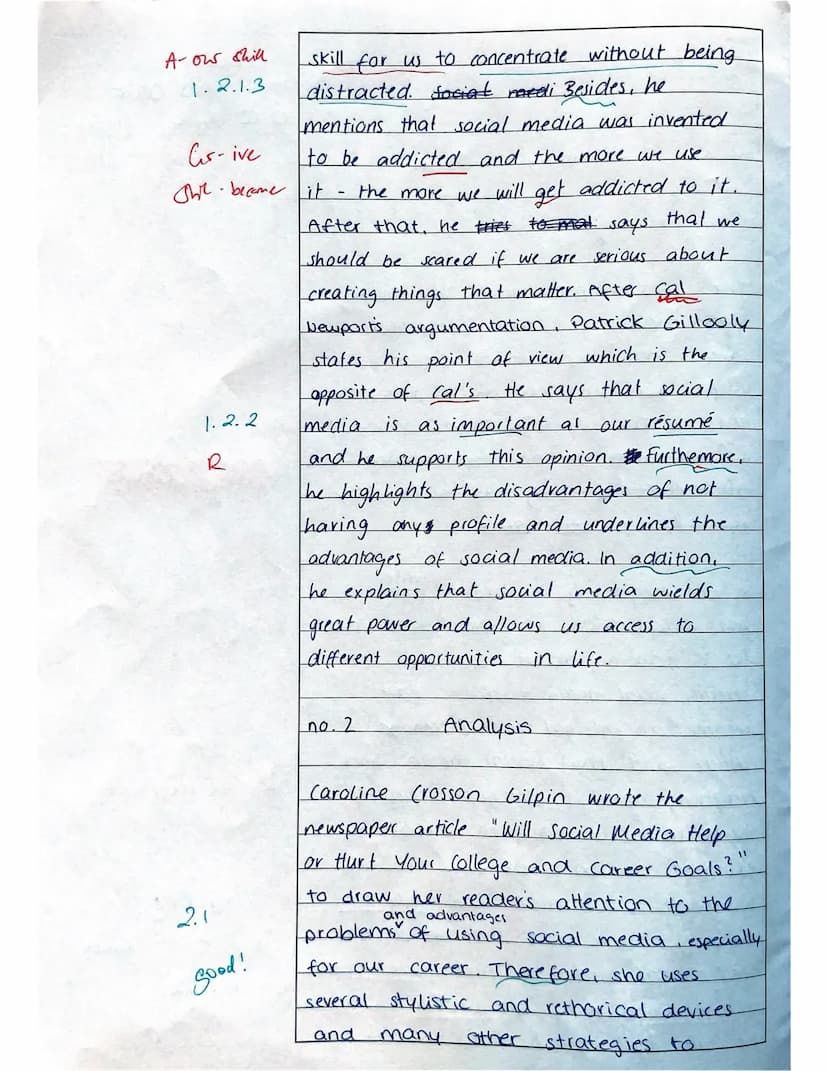 A - our skill
1.2.1.3
Gr - ive
Stil - become
1.2.2
R
2.1
good!
skill for us to concentrate without being
distracted. Besides, he
mentions that social media was invented
to be addicted and the more we use
it - the more we will get addicted to it.
After that, he tries says that we
should be scared if we are serious about
creating things that matter. After Cal
Newport's argumentation, Patrick Gillooly
states his point of view which is the
opposite of Cal's. He says that social
media is as important as our résumé
and he supports this opinion. Furthemore,
he highlights the disadvantages of not
having any profile and underlines the
advantages of social media. In addition,
he explains that social media wields
great power and allows us access to
different opportunities in life.
no. 2 Analysis
Caroline Crosson Gilpin wrote the
newspaper article "Will Social Media Help
or Hurt Your College and Career Goals?"
to draw her reader's attention to the
and advantages
problems of using social media, especially
for our career. Therefore, she uses
several stylistic and rethorical devices
and many other strategies to